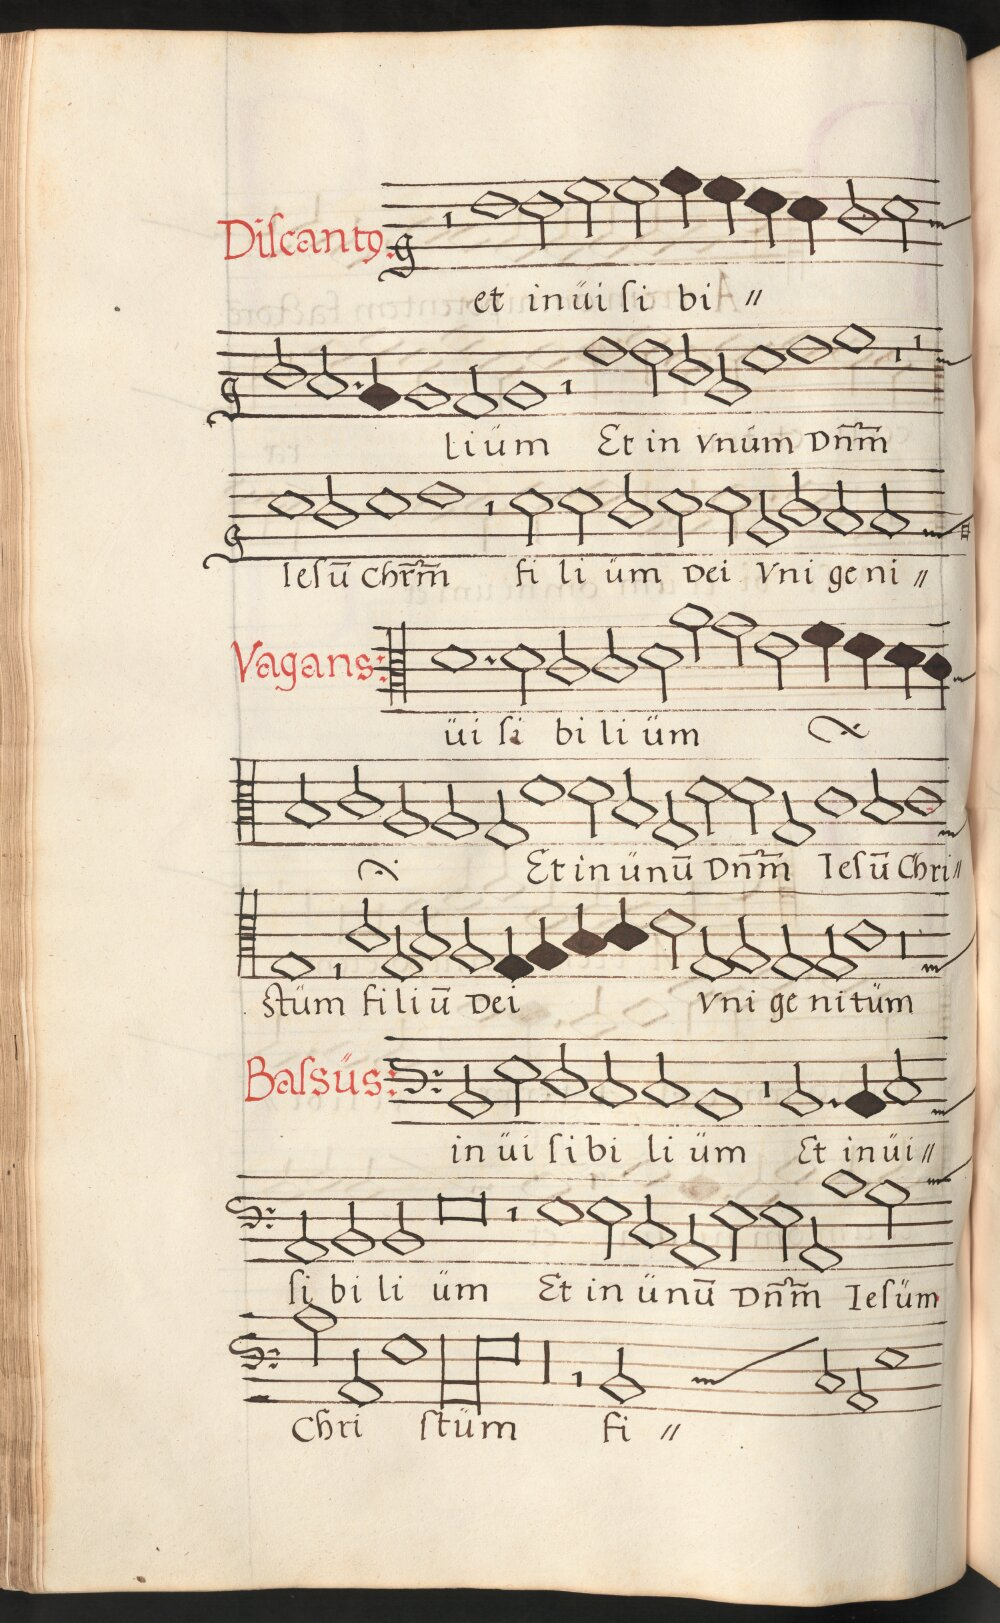 Diſcantꝯ:
et inüi ſi bi //
liüm Et in vnüm Dn̄m̄
Ieſū Chr̄m̄ fi li üm Dei Vni geni //
Vagans:
üi ſi bi li üm
Et in ünū Dn̄m̄ Ieſū Chri //
ſtüm filiū Dei vni ge nitüm
Baſsüs:
in üi ſi bi li üm Et inüi //
ſi bi li üm Et in ünū Dn̄m̄ Ieſüm
Chri ſtüm fi //